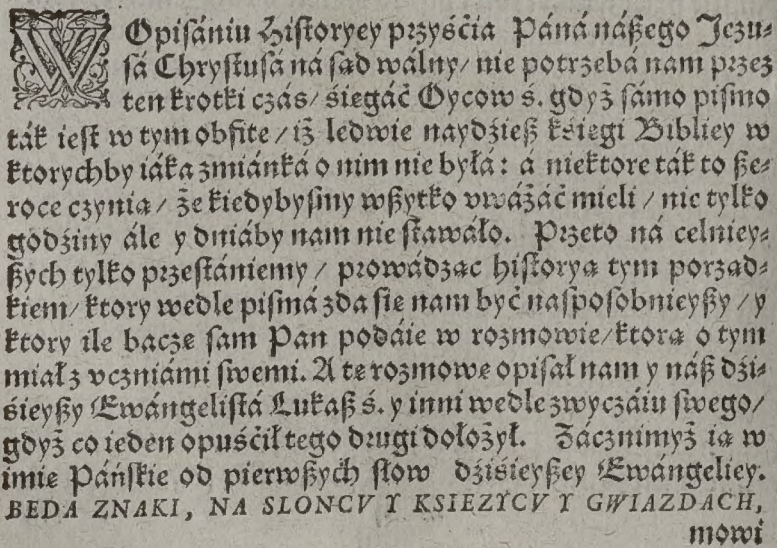 WOpisániu Historyey przyśćia Páná nászego Jezu-
sá Chrystusá ná sąd wálny/ nie potrzebá nam przez
ten krotki czás/ śięgáć Oycow ś. gdyż sámo pismo
ták iest w tym obfite/ iż ledwie naydźiesz kśięgi Bibliey w
ktorychby iáka zmiánká o nim nie byłá: á niektore ták to sze-
roce czynią/ że kiedybysmy wszytko vważáć mieli/ nie tylko
godźiny ále y dniáby nam nie stawáło. Przeto ná celniey-
szych tylko przestániemy/ prowádząc historyą tym porząd-
kiem/ ktory wedle pismá zda się nam być nasposobnieyszy/ y
ktory ile baczę sam Pan podáie w rozmowie/ ktorą o tym
miał z vczniámi swemi. A tę rozmowę opisał nam y nász dźi-
śieyszy Ewángelistá Lukasz ś. y inni wedle zwyczáiu swego/
gdyż co ieden opuśćił tego drugi dołożył. Zácznimyż ią w
imię Páńskie od pierwszych słow dźiśieyszey Ewángeliey.
BEDA ZNAKI, NA SLONCV Y KSIEZYCV Y GWIAZDACH,
mowi